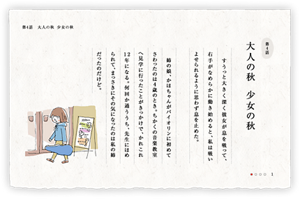 第4話　大人の秋　少女の秋
第4話
大人の秋　少女の秋
すうっと大きく深く彼女が息を吸って、
右手がなめらかに動き始めると、私は吸い
よせられるように思わず息を止めた。
姉の娘、かほちゃんがバイオリンに初めて
さわったのは4歳のとき。ちかくの音楽教室
へ見学に行ったことがきっかけで、かれこれ
12年になる。何回か通ううち、先生にほめ
られて、まっさきにその気になったのは私の姉
だったのだけど。
1